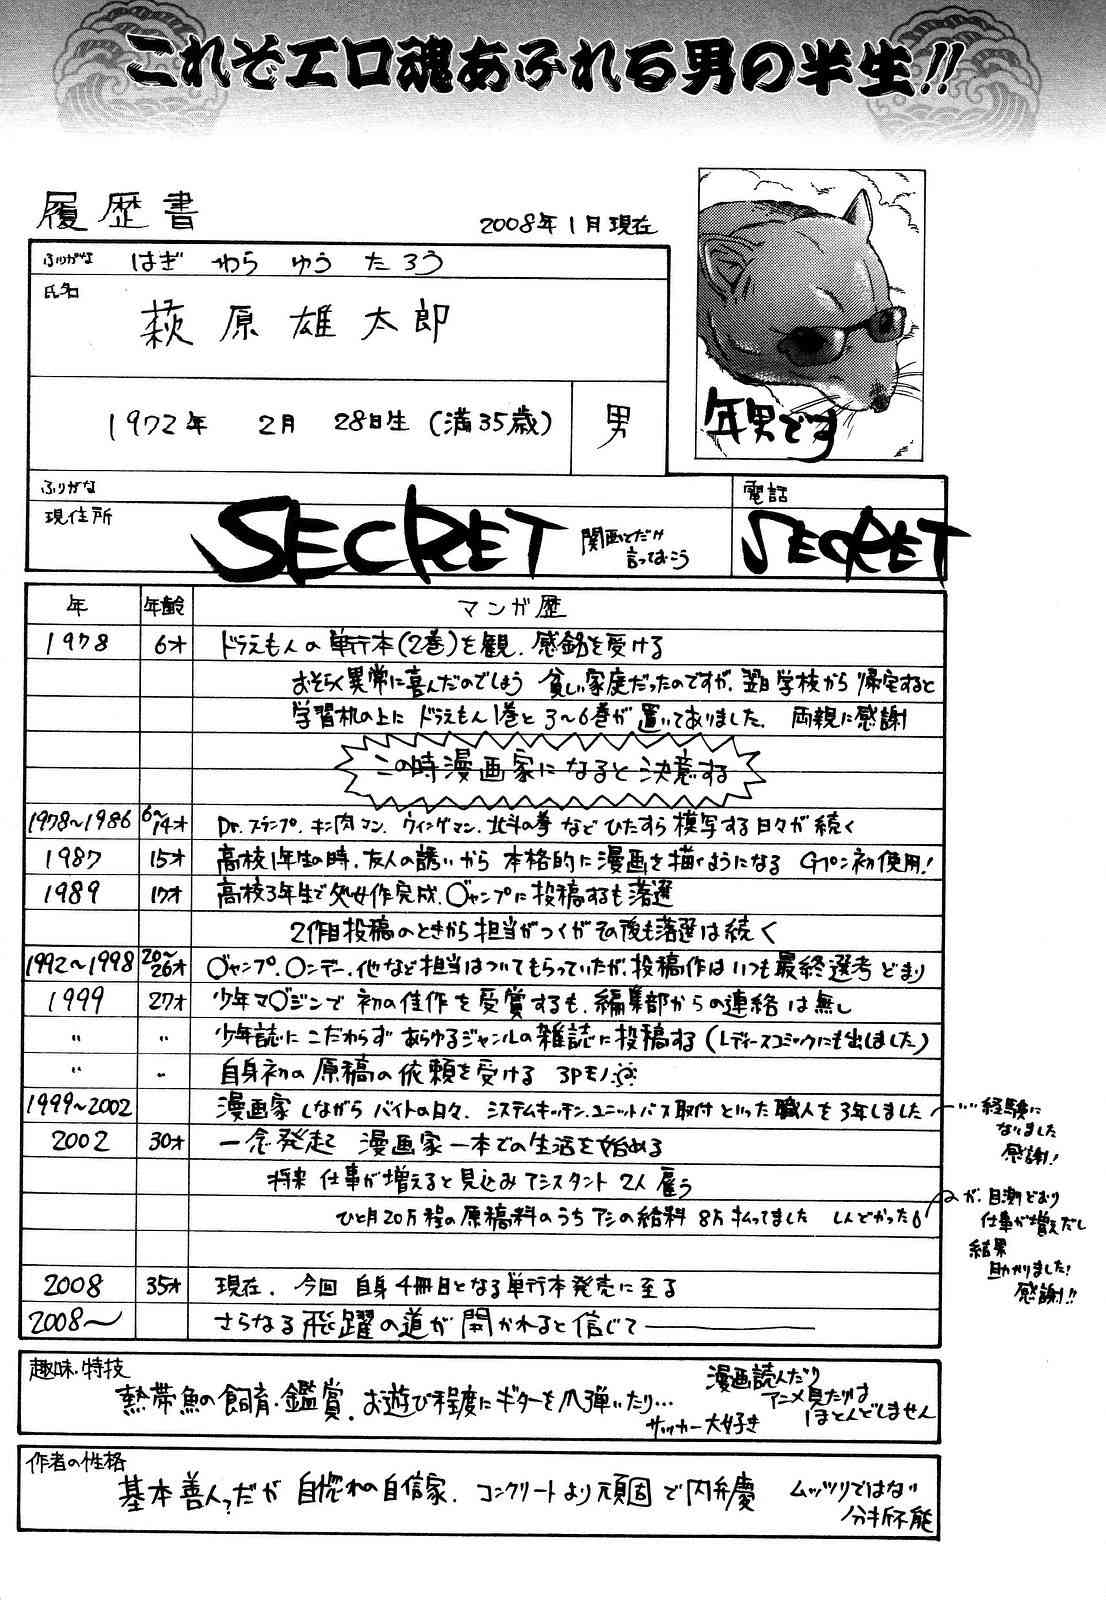 これぞエロ魂あふれる男の半生!!
履歴書
2008年1月現在
ふりがな はぎ わら ゆう たろう
氏名
萩原雄太郎
1972年 2月 28日生(満35歳) 男
年男です
ふりがな
現住所 SECRET 関西とだけ言っておこう
電話
SECRET
年 年齢 マンガ歴
1978 6才 ドラえもんの単行本(2巻)を観、感銘を受ける
おそらく異常に喜んだのでしょう 貧しい家庭だったのですが、翌日学校から帰宅すると
学習机の上にドラえもん1巻と3～6巻が置いてありました。 両親に感謝
この時漫画家になると決意する
1978～1986 6～14才 Dr.スランプ、キン肉マン、ウイングマン、北斗の拳などひたすら模写する日々が続く
1987 15才 高校1年生の時、友人の誘いから本格的に漫画を描くようになる Gペン初使用!
1989 17才 高校3年生で処女作完成、○ャンプに投稿するも落選
2作目投稿のときから担当がつくがその後も落選は続く
1992～1998 20～26才 ○ャンプ、○ンデー、他など担当はついてもらっていたが、投稿作はいつも最終選考どまり
1999 27才 少年マ○ジンで初の佳作を受賞するも、編集部からの連絡は無し
〃 〃 少年誌にこだわらずあらゆるジャンルの雑誌に投稿する(レディースコミックにも出しました)
〃 〃 自身初の原稿の依頼を受ける 3Pモノ
1999～2002 漫画家しながらバイトの日々、システムキッチン、ユニットバス取付といった職人を3年しました
…経験に
なりました
感謝!
2002 30才 一念発起 漫画家一本での生活を始める
将来仕事が増えると見込みアシスタント2人雇う
ひと月20万程の原稿料のうちアシの給料8万払ってました しんどかった
が、目測どおり
仕事が増えだし
結果
助かりました!
感謝!!
2008 35才 現在、今回自身4冊目となる単行本発売に至る
2008～ さらなる飛躍の道が開かれると信じて―――
趣味・特技
熱帯魚の飼育・鑑賞。お遊び程度にギターを爪弾いたり…
サッカー大好き
漫画読んだり
アニメ見たりは
ほとんどしません
作者の性格
基本善人っだが自惚れの自信家、コンクリートより頑固で内弁慶 ムッツリではない
分析不能